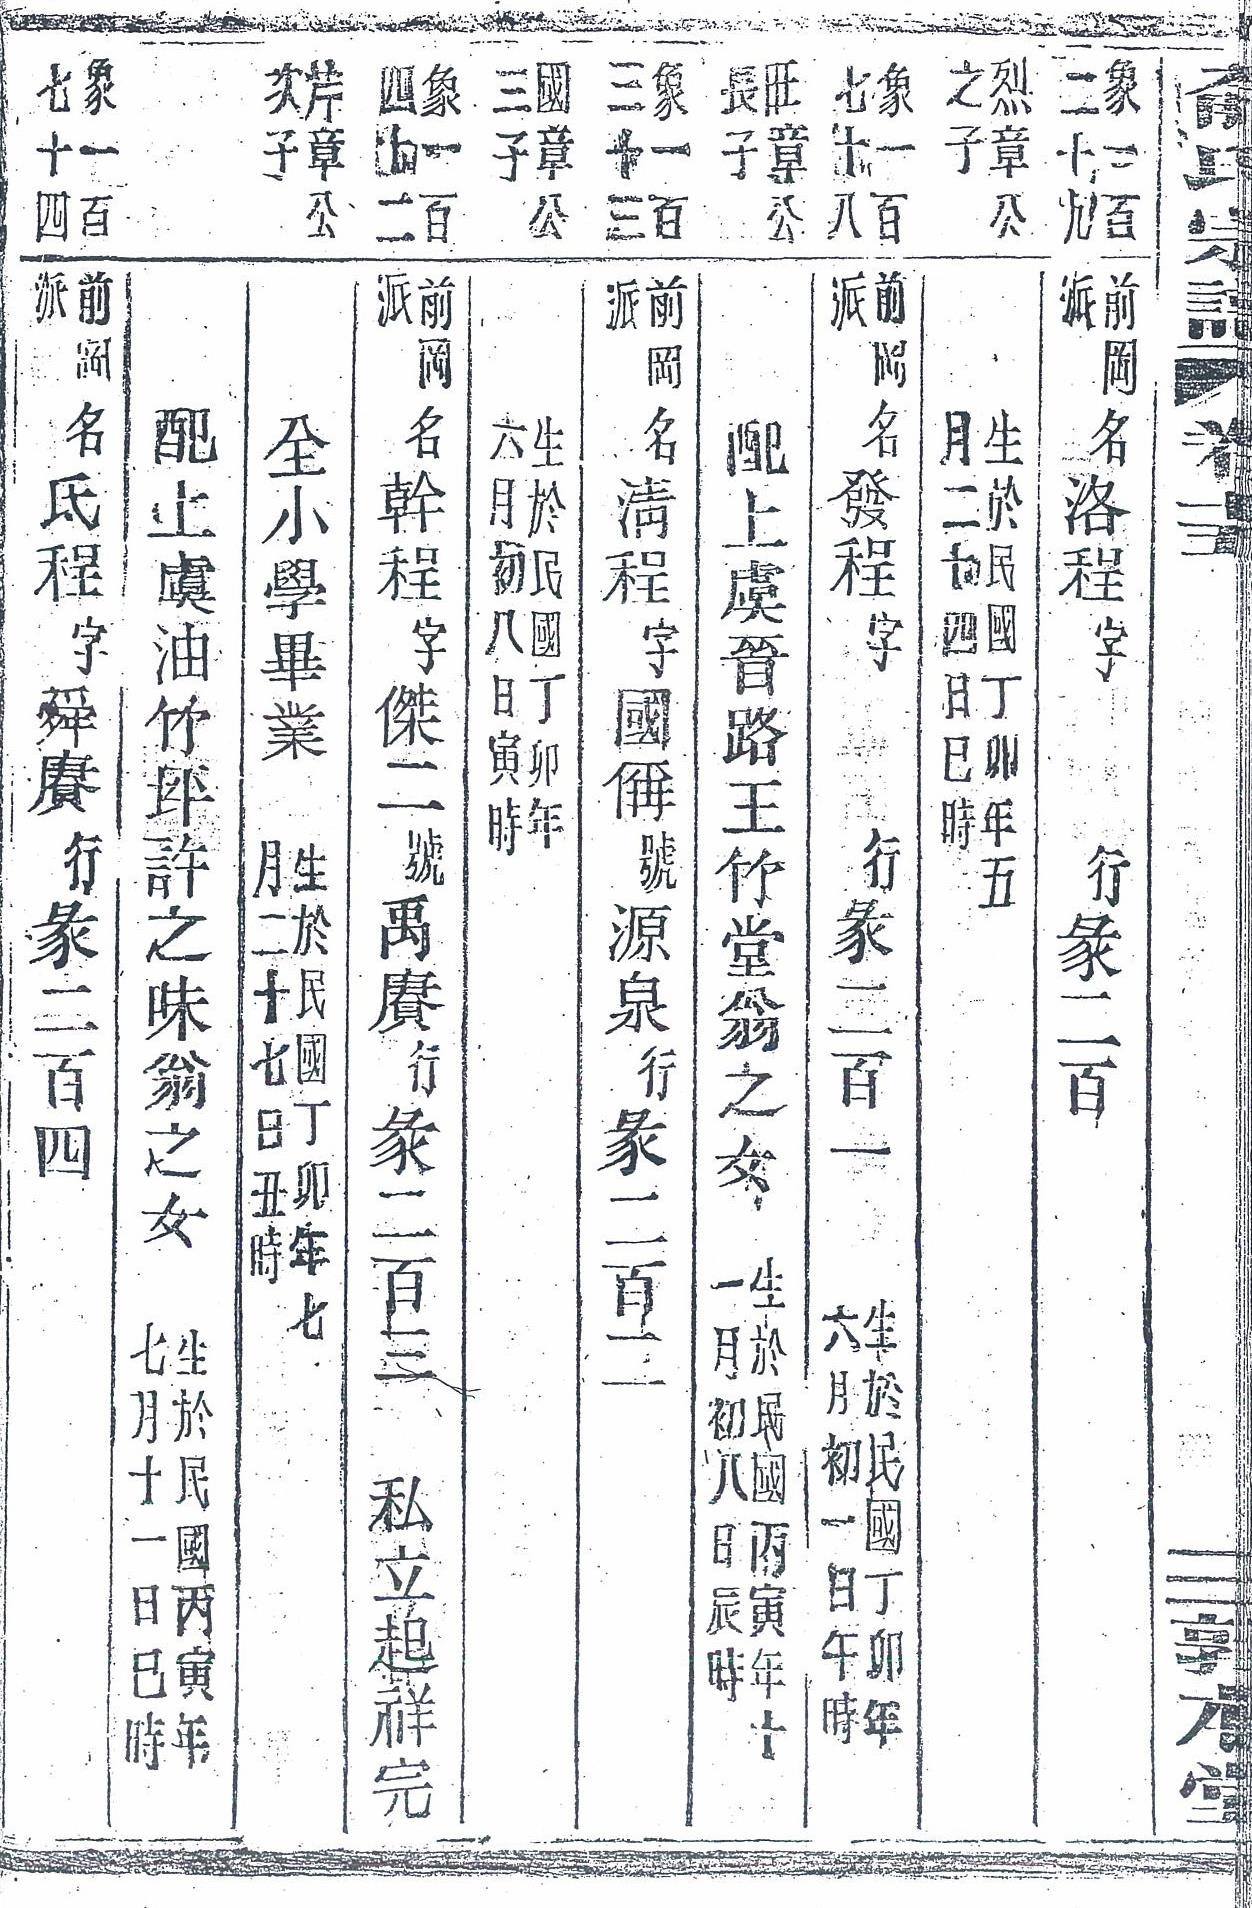 氏宗譜 卷 三 敦本堂
象一百
三十九
前岡
派
名洛程字 行彖二百
烈章公
之子
生於民國丁卯年五
月二十四日巳時
象一百
七十八
前岡
派
名發程字 行彖二百一 生於民國丁卯年
六月初一日午時
旺章公
長子
配上虞晉路王竹堂翁之女 生於民國丙寅年十
一月初八日辰時
象一百
三十三
前岡
派
名淸程字國偁號源泉行彖二百二
國章公
三子
生於民國丁卯年
六月初八日寅時
象一百
四十二
前岡
派
名幹程字傑二號禹賡行彖二百三 私立起祥完
芹章公
次子
全小學畢業 生於民國丁卯年七
月二十七日丑時
配上虞油竹郢許之味翁之女 生於民國丙寅年
七月十一日巳時
象一百
七十四
前岡
派
名氏程字舜賡行彖二百四